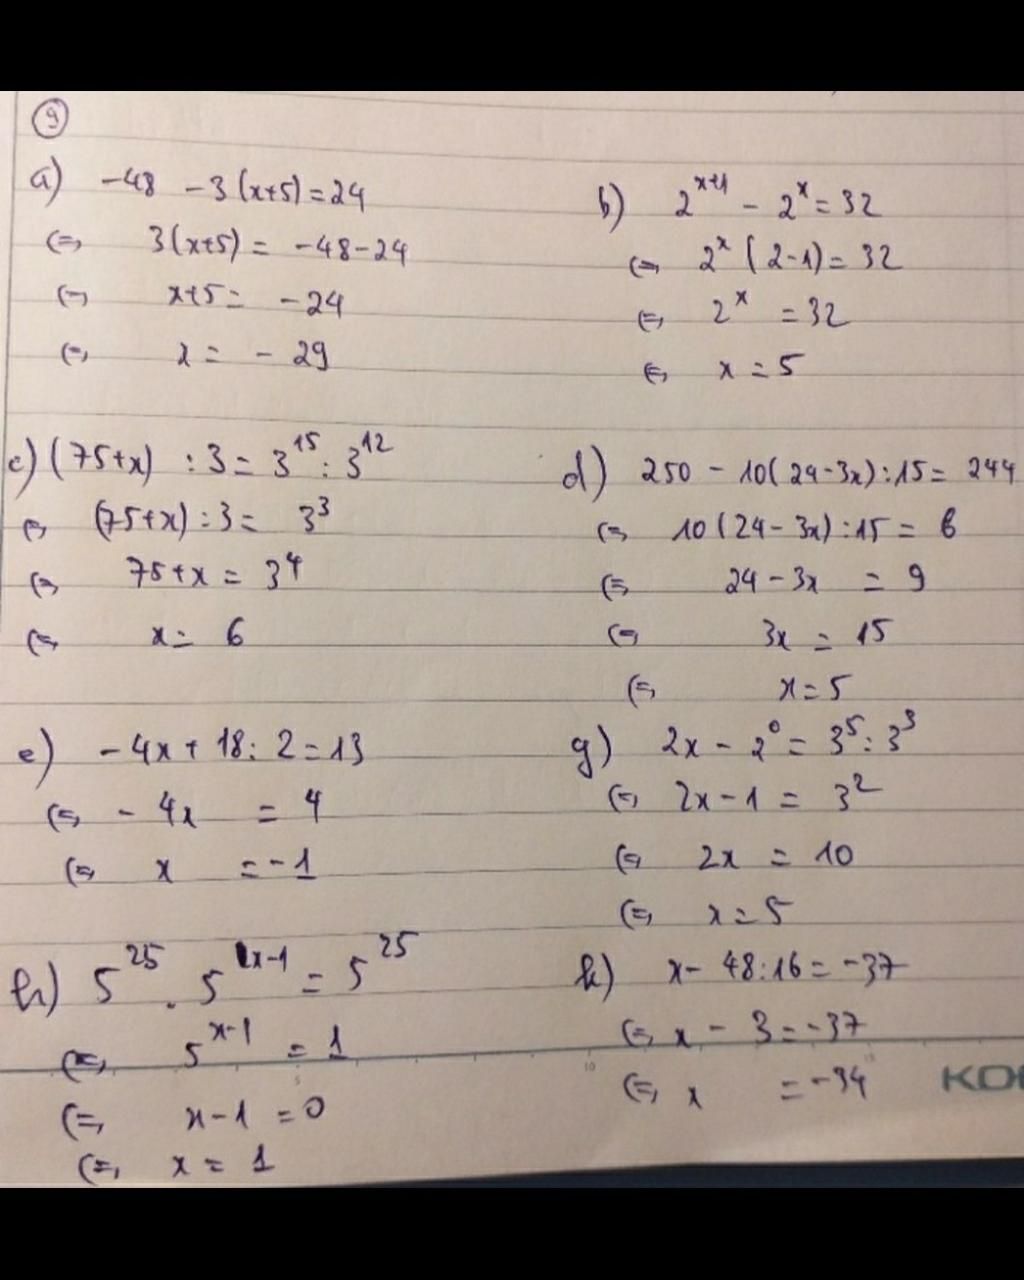 9
a) -48 - 3(x+5) = 24
(=) 3(x+5) = -48-24
(=) x+5 = -24
(=) x = -29
b) 2^{x+1} - 2^x = 32
(=) 2^x (2-1) = 32
(=) 2^x = 32
(=) x = 5
c) (75+x) : 3 = 3^{15} : 3^{12}
(=) (75+x) : 3 = 3^3
(=) 75+x = 3^4
(=) x = 6
d) 250 - 10(24-3x) : 15 = 244
(=) 10(24-3x) : 15 = 6
(=) 24-3x = 9
(=) 3x = 15
(=) x = 5
e) -4x + 18 : 2 = 13
(=) -4x = 4
(=) x = -1
g) 2x - 2^0 = 3^5 : 3^3
(=) 2x-1 = 3^2
(=) 2x = 10
(=) x = 5
h) 5^{25} . 5^{x-1} = 5^{25}
(=) 5^{x-1} = 1
(=) x-1 = 0
(=) x = 1
k) x - 48 : 16 = -37
(=) x - 3 = -37
(=) x = -34
5 10 15